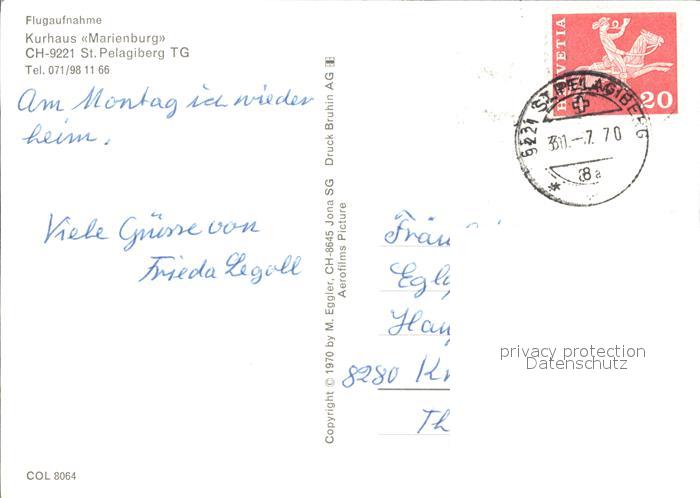 Flugaufnahme
Kurhaus «Marienburg»
CH-9221 St. Pelagiberg TG
Tel. 071/98 11 66
Am Montag ich wieder
heim.
Viele Grüsse von
Frieda Legoll
COL 8064
Copyright © 1970 by M. Eggler, CH-8645 Jona SG Druck Bruhin AG
Aerofilms Picture
HELVETIA
20
9221 ST. PELAGIBERG
-7 70
8a
Fräu
Egl
Hau
8280 Kr
Th
privacy protection
Datenschutz